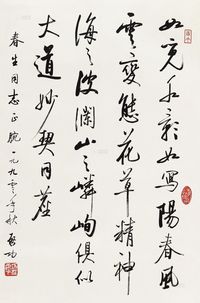 如觅水影如写阳春风
云变态花草精神
海之波澜山之嶙峋俱似
大道妙契同尘
春生同志正腕一九九〇年秋启功